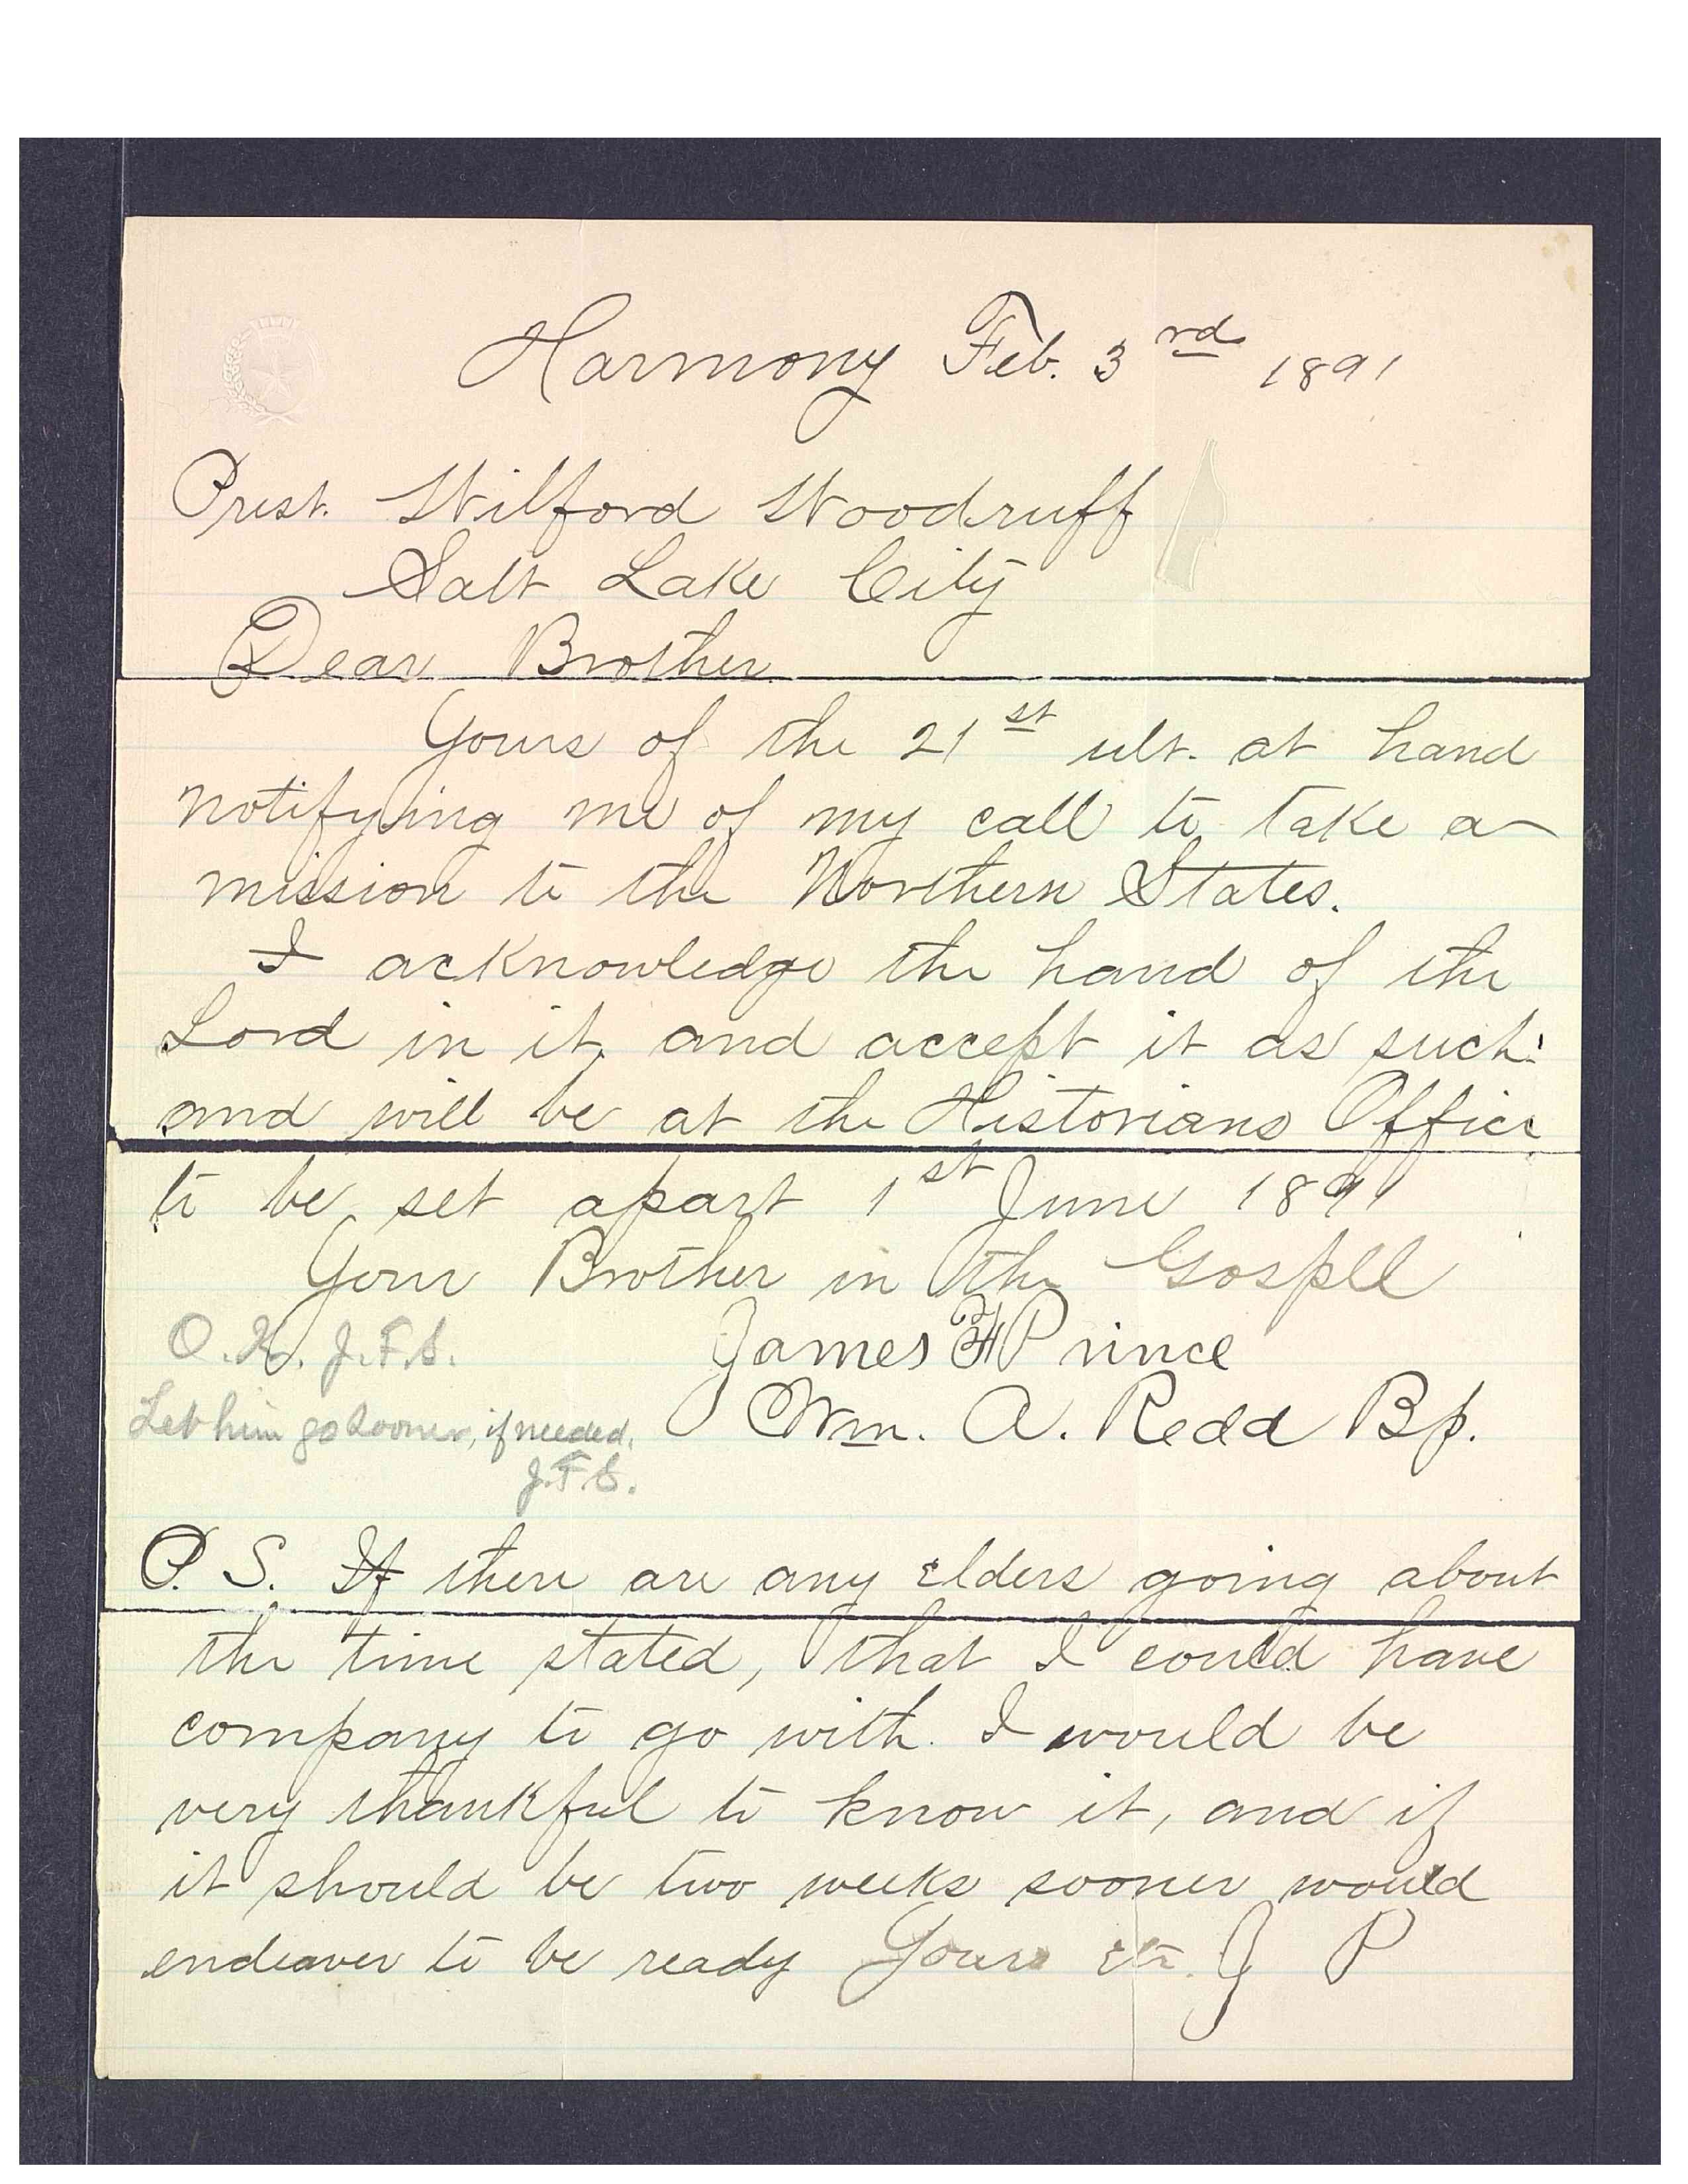 Harmony Feb. 3rd 1891
Prest. Wilford Woodruff
Salt Lake City
Dear Brother
Yours of the 21st ult. at hand
notifying me of my call to take a
mission to the Northern States.
I acknowledge the hand of the
Lord in it, and accept it as such:
and will be at the Historians Office
to be set apart 1st June 1891
Your Brother in the Gospell
James F Prince
Wm. A. Redd Bp.
O.K. J.F.S.
Let him go sooner, if needed.
J.F.S.
P. S. If there are any Elders going about
the time stated, that I could have
company to go with. I would be
very thankful to know it, and if
it should be two weeks sooner would
endeaver to be ready Yours etc. J P